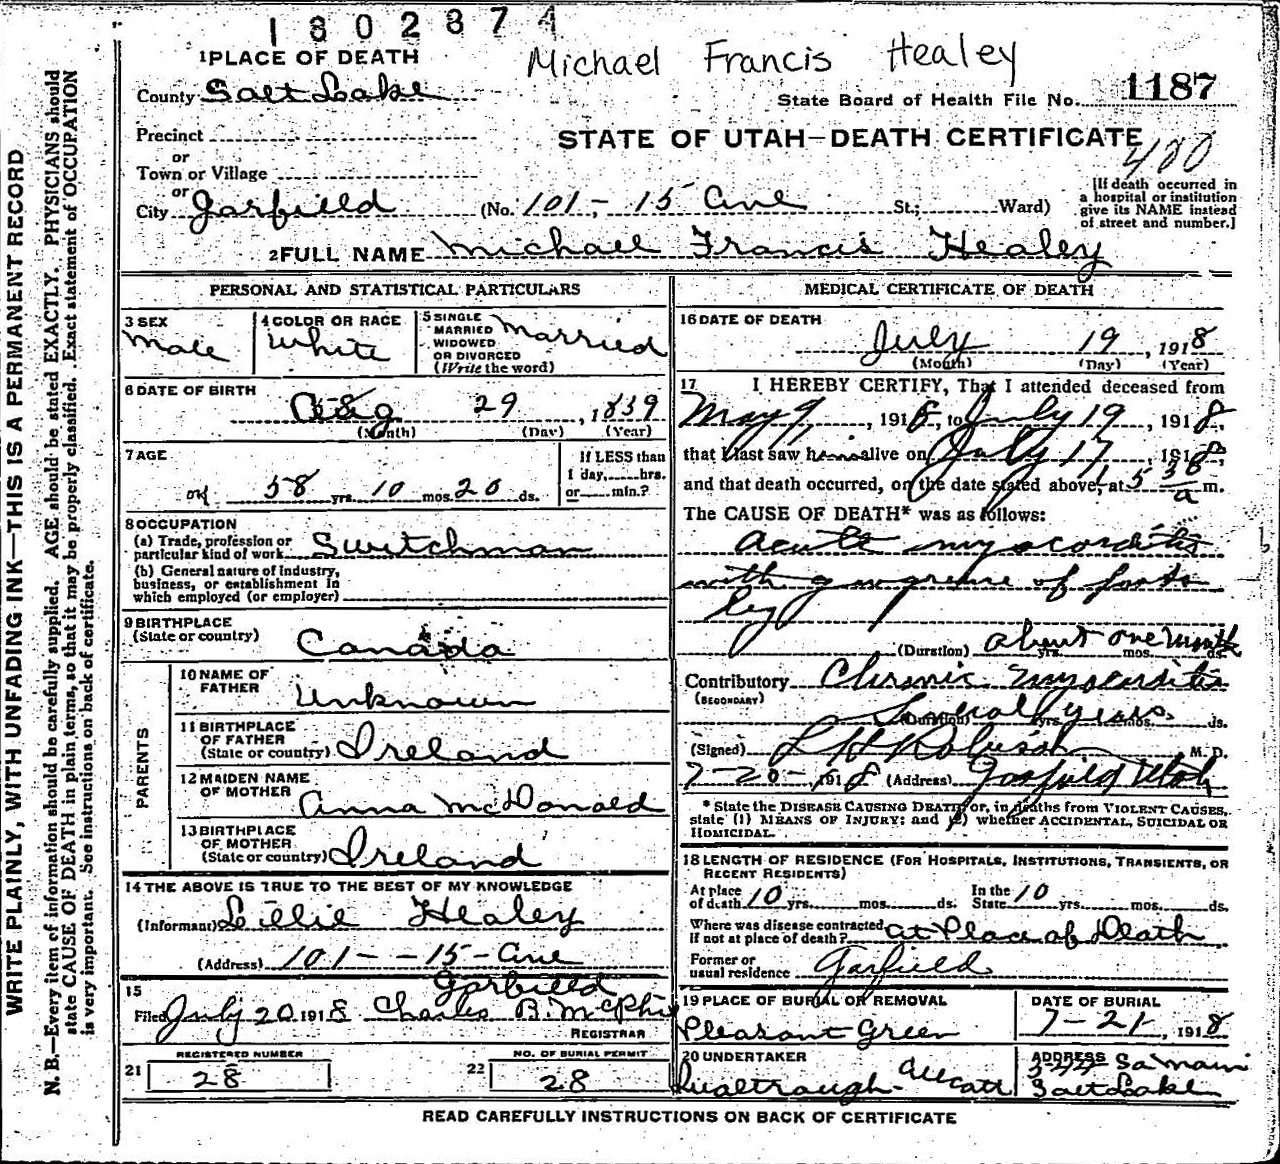 1802874
Michael Francis Healey
1 PLACE OF DEATH
County Salt Lake
State Board of Health File No. 1187
Precinct
STATE OF UTAH—DEATH CERTIFICATE
480
or
Town or Village
or
City Garfield (No. 101 - 15 Ave St.; Ward)
[If death occurred in a hospital or institution give its NAME instead of street and number.]
2 FULL NAME Michael Francis Healey
PERSONAL AND STATISTICAL PARTICULARS
3 SEX Male
4 COLOR OR RACE White
5 SINGLE MARRIED WIDOWED OR DIVORCED (Write the word) Married
6 DATE OF BIRTH
Aug 29, 1839
(Month) (Day) (Year)
7 AGE
58 yrs. 10 mos. 20 ds.
If LESS than 1 day, hrs. or min.?
8 OCCUPATION
(a) Trade, profession or particular kind of work Switchman
(b) General nature of industry, business, or establishment in which employed (or employer)
9 BIRTHPLACE (State or country) Canada
PARENTS
10 NAME OF FATHER Unknown
11 BIRTHPLACE OF FATHER (State or country) Ireland
12 MAIDEN NAME OF MOTHER Anna McDonald
13 BIRTHPLACE OF MOTHER (State or country) Ireland
14 THE ABOVE IS TRUE TO THE BEST OF MY KNOWLEDGE
(Informant) Lillie Healey
(Address) 101 - - 15 - Ave
Garfield
15
Filed July 20 1918 Charles B. McPhie
REGISTRAR
21 REGISTERED NUMBER 28
22 NO. OF BURIAL PERMIT 28
MEDICAL CERTIFICATE OF DEATH
16 DATE OF DEATH
July 19, 1918
(Month) (Day) (Year)
17 I HEREBY CERTIFY, That I attended deceased from
May 9, 191 to July 19, 1918,
that I last saw him alive on July 17, 1918,
and that death occurred, on the date stated above, at 5 30 a m.
The CAUSE OF DEATH* was as follows:
Acute myocarditis
with gangrene of foot &
leg
(Duration) about one month yrs. mos. ds.
Contributory (SECONDARY) Chronic Myocarditis
(Duration) Several years. yrs. mos. ds.
(Signed) Robinson M. D.
7-20-, 1918 (Address) Garfield Utah
* State the DISEASE CAUSING DEATH, or, in deaths from VIOLENT CAUSES, state (1) MEANS OF INJURY; and (2) whether ACCIDENTAL, SUICIDAL OR HOMICIDAL.
18 LENGTH OF RESIDENCE (FOR HOSPITALS, INSTITUTIONS, TRANSIENTS, OR RECENT RESIDENTS)
At place of death 10 yrs. mos. ds. In the State 10 yrs. mos. ds.
Where was disease contracted if not at place of death? at Place of Death
Former or usual residence Garfield
19 PLACE OF BURIAL OR REMOVAL Pleasant Green
DATE OF BURIAL 7-21, 1918
20 UNDERTAKER
ADDRESS So Main
Salt Lake
READ CAREFULLY INSTRUCTIONS ON BACK OF CERTIFICATE
WRITE PLAINLY, WITH UNFADING INK—THIS IS A PERMANENT RECORD
N. B.—Every item of information should be carefully supplied. AGE should be stated EXACTLY. PHYSICIANS should
state CAUSE OF DEATH in plain terms, so that it may be properly classified. Exact statement of OCCUPATION
is very important. See instructions on back of certificate.